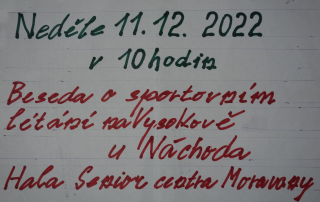 Neděle 11.12. 2022
v 10 hodin
Beseda o sportovním
létání na Vysokově
u Náchoda
Hala Senior centra Moravany